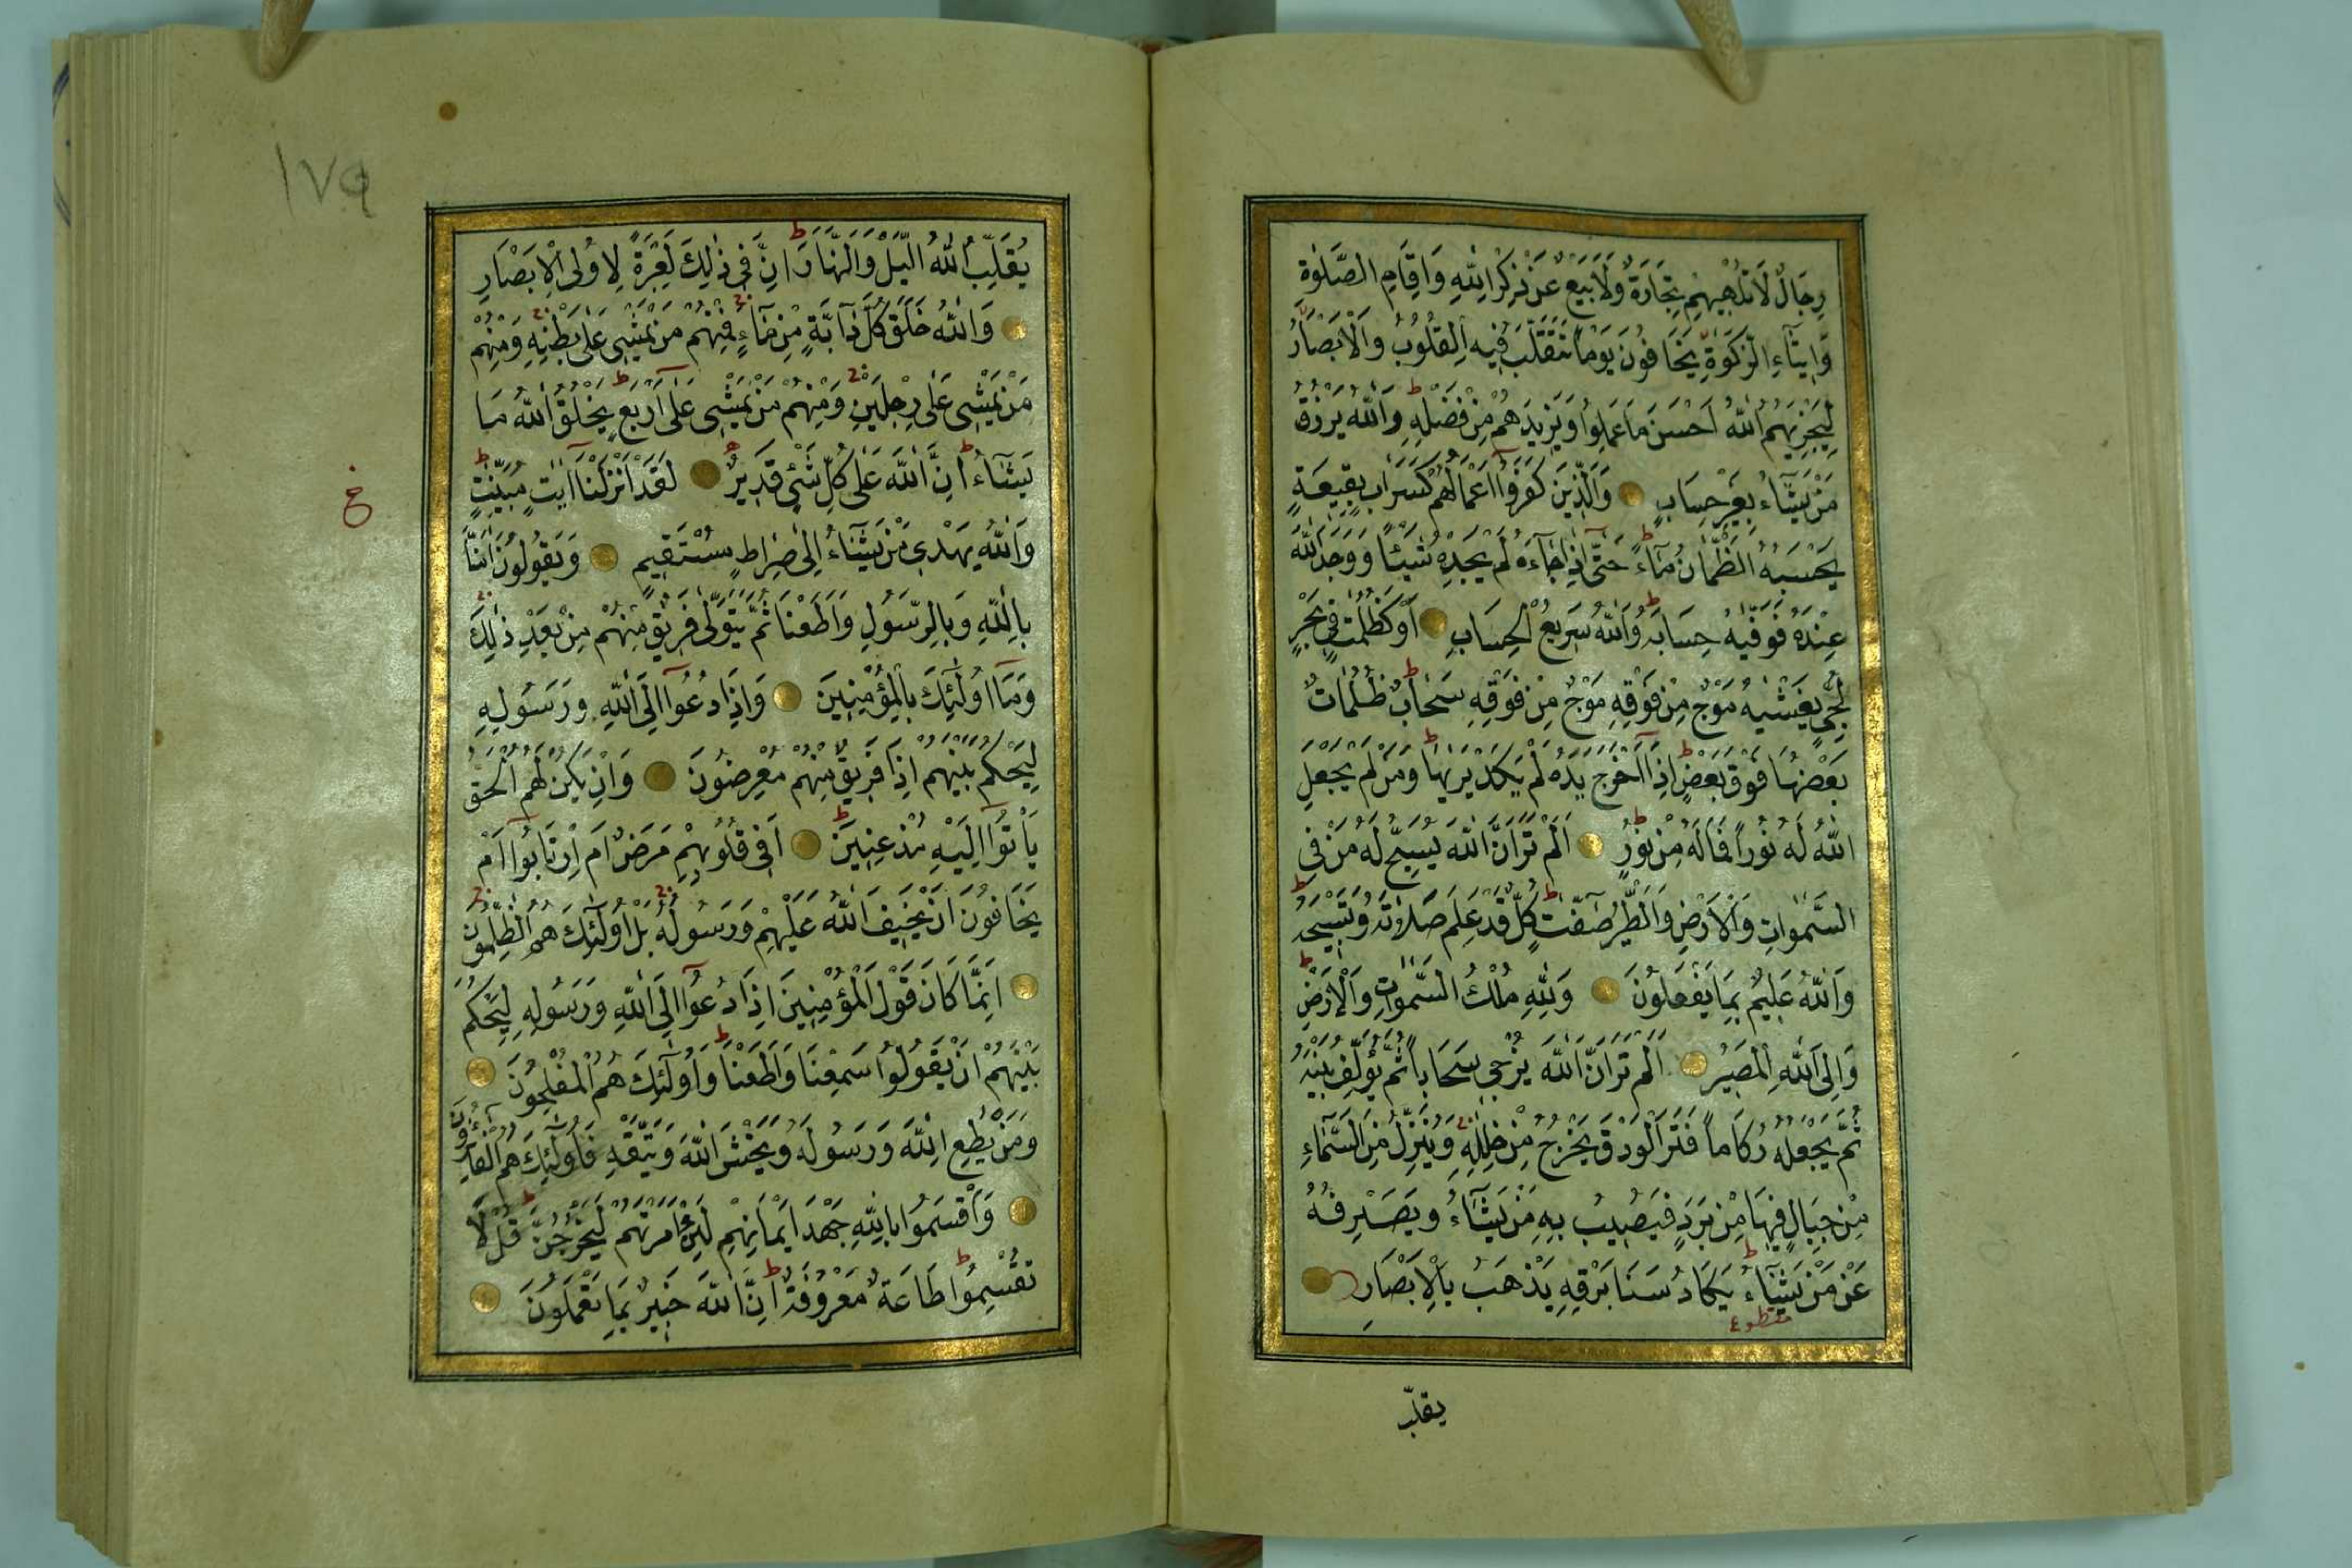 رِجَالٌ لَا تُلْهِيهِمْ تِجَارَةٌ وَلَا بَيْعٌ عَنْ ذِكْرِ اللّٰهِ وَاِقَامِ الصَّلٰوةِ
وَاِيتَاءِ الزَّكٰوةِ يَخَافُونَ يَوْمًا تَتَقَلَّبُ فِيهِ الْقُلُوبُ وَالْاَبْصَارُ
لِيَجْزِيَهُمُ اللّٰهُ اَحْسَنَ مَا عَمِلُوا وَيَزِيدَهُمْ مِنْ فَضْلِهِ وَاللّٰهُ يَرْزُقُ
مَنْ يَشَاءُ بِغَيْرِ حِسَابٍ وَالَّذِينَ كَفَرُوا اَعْمَالُهُمْ كَسَرَابٍ بِقِيعَةٍ
يَحْسَبُهُ الظَّمْاٰنُ مَاءً حَتّٰى اِذَا جَاءَهُ لَمْ يَجِدْهُ شَيْئًا وَوَجَدَ اللّٰهَ
عِنْدَهُ فَوَفّٰيهُ حِسَابَهُ وَاللّٰهُ سَرِيعُ الْحِسَابِ اَوْ كَظُلُمَاتٍ فِي بَحْرٍ
لُجِّيٍّ يَغْشٰيهُ مَوْجٌ مِنْ فَوْقِهِ مَوْجٌ مِنْ فَوْقِهِ سَحَابٌ ظُلُمَاتٌ
بَعْضُهَا فَوْقَ بَعْضٍ اِذَا اَخْرَجَ يَدَهُ لَمْ يَكَدْ يَرٰيهَا وَمَنْ لَمْ يَجْعَلِ
اللّٰهُ لَهُ نُورًا فَمَا لَهُ مِنْ نُورٍ اَلَمْ تَرَ اَنَّ اللّٰهَ يُسَبِّحُ لَهُ مَنْ فِي
السَّمٰوَاتِ وَالْاَرْضِ وَالطَّيْرُ صَافَّاتٍ كُلٌّ قَدْ عَلِمَ صَلَاتَهُ وَتَسْبِيحَهُ
وَاللّٰهُ عَلِيمٌ بِمَا يَفْعَلُونَ وَلِلّٰهِ مُلْكُ السَّمٰوَاتِ وَالْاَرْضِ
وَاِلَى اللّٰهِ الْمَصِيرُ اَلَمْ تَرَ اَنَّ اللّٰهَ يُزْجِي سَحَابًا ثُمَّ يُؤَلِّفُ بَيْنَهُ
ثُمَّ يَجْعَلُهُ رُكَامًا فَتَرَى الْوَدْقَ يَخْرُجُ مِنْ خِلٰلِهِ وَيُنَزِّلُ مِنَ السَّمَاءِ
مِنْ جِبَالٍ فِيهَا مِنْ بَرَدٍ فَيُصِيبُ بِهِ مَنْ يَشَاءُ وَيَصْرِفُهُ
عَنْ مَنْ يَشَاءُ يَكَادُ سَنَا بَرْقِهِ يَذْهَبُ بِالْاَبْصَارِ
مقطوع
يقلّب
١٧٩
يُقَلِّبُ اللّٰهُ الَّيْلَ وَالنَّهَارَ اِنَّ فِي ذٰلِكَ لَعِبْرَةً لِاُولِي الْاَبْصَارِ
وَاللّٰهُ خَلَقَ كُلَّ دَابَّةٍ مِنْ مَاءٍ فَمِنْهُمْ مَنْ يَمْشِي عَلٰى بَطْنِهِ وَمِنْهُمْ
مَنْ يَمْشِي عَلٰى رِجْلَيْنِ وَمِنْهُمْ مَنْ يَمْشِي عَلٰى اَرْبَعٍ يَخْلُقُ اللّٰهُ مَا
يَشَاءُ اِنَّ اللّٰهَ عَلٰى كُلِّ شَيْءٍ قَدِيرٌ لَقَدْ اَنْزَلْنَا اٰيَاتٍ مُبَيِّنَاتٍ
ع
وَاللّٰهُ يَهْدِي مَنْ يَشَاءُ اِلٰى صِرَاطٍ مُسْتَقِيمٍ وَيَقُولُونَ اٰمَنَّا
بِاللّٰهِ وَبِالرَّسُولِ وَاَطَعْنَا ثُمَّ يَتَوَلّٰى فَرِيقٌ مِنْهُمْ مِنْ بَعْدِ ذٰلِكَ
وَمَا اُولٰئِكَ بِالْمُؤْمِنِينَ وَاِذَا دُعُوا اِلَى اللّٰهِ وَرَسُولِهِ
لِيَحْكُمَ بَيْنَهُمْ اِذَا فَرِيقٌ مِنْهُمْ مُعْرِضُونَ وَاِنْ يَكُنْ لَهُمُ الْحَقُّ
يَأْتُوا اِلَيْهِ مُذْعِنِينَ اَفِي قُلُوبِهِمْ مَرَضٌ اَمِ ارْتَابُوا اَمْ
يَخَافُونَ اَنْ يَحِيفَ اللّٰهُ عَلَيْهِمْ وَرَسُولُهُ بَلْ اُولٰئِكَ هُمُ الظَّالِمُونَ
اِنَّمَا كَانَ قَوْلَ الْمُؤْمِنِينَ اِذَا دُعُوا اِلَى اللّٰهِ وَرَسُولِهِ لِيَحْكُمَ
بَيْنَهُمْ اَنْ يَقُولُوا سَمِعْنَا وَاَطَعْنَا وَاُولٰئِكَ هُمُ الْمُفْلِحُونَ
وَمَنْ يُطِعِ اللّٰهَ وَرَسُولَهُ وَيَخْشَ اللّٰهَ وَيَتَّقْهِ فَاُولٰئِكَ هُمُ الْفَائِزُونَ
وَاَقْسَمُوا بِاللّٰهِ جَهْدَ اَيْمَانِهِمْ لَئِنْ اَمَرْتَهُمْ لَيَخْرُجُنَّ قُلْ لَا
تُقْسِمُوا طَاعَةٌ مَعْرُوفَةٌ اِنَّ اللّٰهَ خَبِيرٌ بِمَا تَعْمَلُونَ